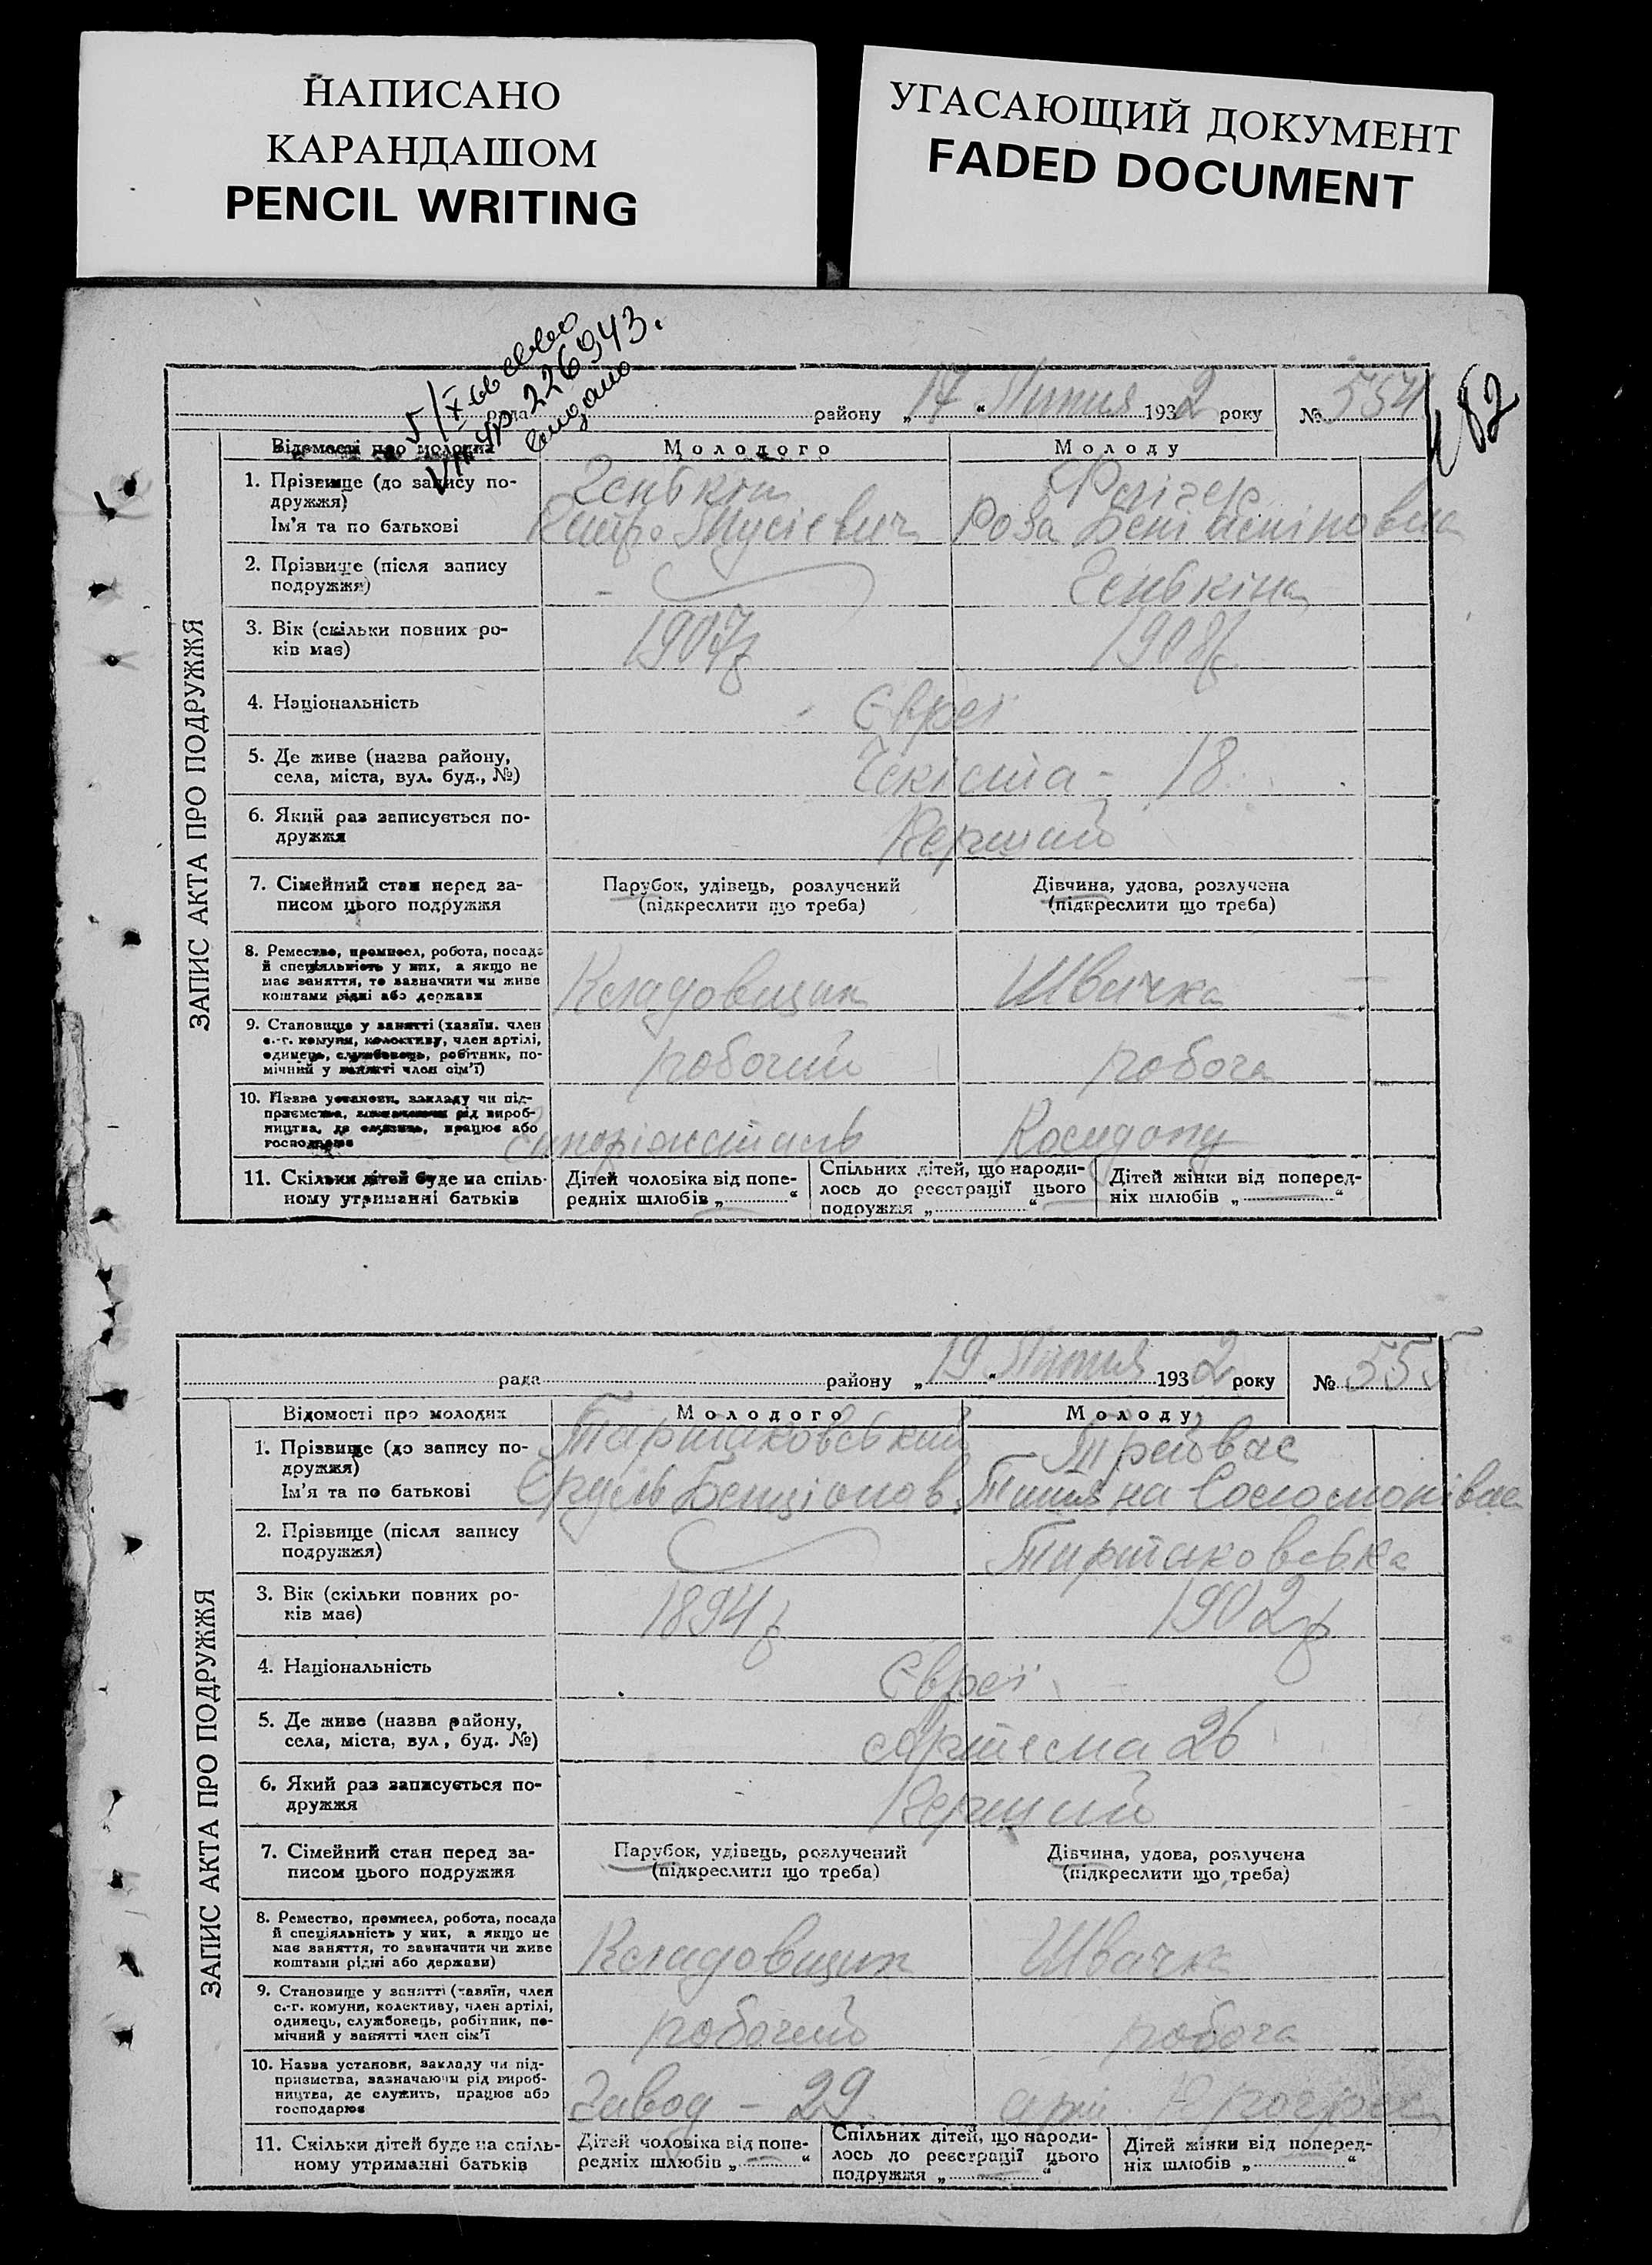 НАПИСАНО
КАРАНДАШОМ
PENCIL WRITING
УГАСАЮЩИЙ ДОКУМЕНТ
FADED DOCUMENT
5/X-66
226943.
82
рада району „17“ Липня 1932 року № 554
ЗАПИС АКТА ПРО ПОДРУЖЖЯ
Відомості про молодих Молодого Молоду
1. Прізвище (до запису по-
дружжя)
Ім'я та по батькові
Генькін
Мусієвич Роза
2. Прізвище (після запису
подружжя)
Генькіна
3. Вік (скільки повних ро-
ків має)
1907 1908
4. Національність
Євреї
5. Де живе (назва району,
села, міста, вул. буд., №)
Чекіста - 18
6. Який раз записується по-
дружжя
Перший
7. Сімейний стан перед за-
писом цього подружжя
Парубок, удівець, розлучений
(підкреслити що треба)
Дівчина, удова, розлучена
(підкреслити що треба)
8. Ремество, промисел, робота, посада
й спеціяльність у них, а якщо не
має заняття, то зазначити чи живе
коштами рідні або держави
Кладовщик Швачка
9. Становище у занятті (хазяїн, член
с.-г. комуни, колективу, член артілі,
одинець, службовець, робітник, по-
мічний у занятті член сім'ї)
робочий робоча
10. Назва установи, закладу чи під-
приємства, зазначаючи рід вироб-
ництва, де служить, працює або
господарює
Запоріжсталь
11. Скільки дітей буде на спіль-
ному утриманні батьків
Дітей чоловіка від попе-
редніх шлюбів „ “
Спільних дітей, що народи-
лось до реєстрації цього
подружжя „ “
Дітей жінки від поперед-
ніх шлюбів „ “
рада району „19“ Липня 1932 року № 555
ЗАПИС АКТА ПРО ПОДРУЖЖЯ
Відомості про молодих Молодого Молоду
1. Прізвище (до запису по-
дружжя)
Ім'я та по батькові
Тартаковський Трейвас
Сруль Бенціонов.
2. Прізвище (після запису
подружжя)
Тартаковська
3. Вік (скільки повних ро-
ків має)
1894 1902
4. Національність
Євреї
5. Де живе (назва району,
села, міста, вул, буд. №)
Артема 26
6. Який раз записується по-
дружжя
Перший
7. Сімейний стан перед за-
писом цього подружжя
Парубок, удівець, розлучений
(підкреслити що треба)
Дівчина, удова, розлучена
(підкреслити що треба)
8. Ремество, промисел, робота, посада
й спеціяльність у них, а якщо не
має заняття, то зазначити чи живе
коштами рідні або держави)
Кладовщик Швачка
9. Становище у занятті (хазяїн, член
с.-г. комуни, колективу, член артілі,
одинець, службовець, робітник, по-
мічний у занятті член сім'ї
робочий робоча
10. Назва установи, закладу чи під-
приємства, зазначаючи рід вироб-
ництва, де служить, працює або
господарює
Завод - 29 арт. Прогрес
11. Скільки дітей буде на спіль-
ному утриманні батьків
Дітей чоловіка від попе-
редніх шлюбів „ “
Спільних дітей, що народи-
лось до реєстрації цього
подружжя „ “
Дітей жінки від поперед-
ніх шлюбів „ “